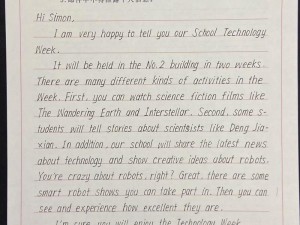 Hi Simon,
I am very happy to tell you our School Technology
Week.
It will be held in the No.2 building in two weeks.
There are many different kinds of activities in the
Week. First, you can watch science fiction films like
The Wandering Earth and Interstellar. Second, some s-
tudents will tell stories about scientists like Deng Jia-
xian. In addition, our school will share the latest news
about technology and show creative ideas about robots.
You're crazy about robots, right? Great, there are some
smart robot shows you can take part in. Then you can
see and experience how excellent they are.
I'm sure you will enjoy the Technology Week